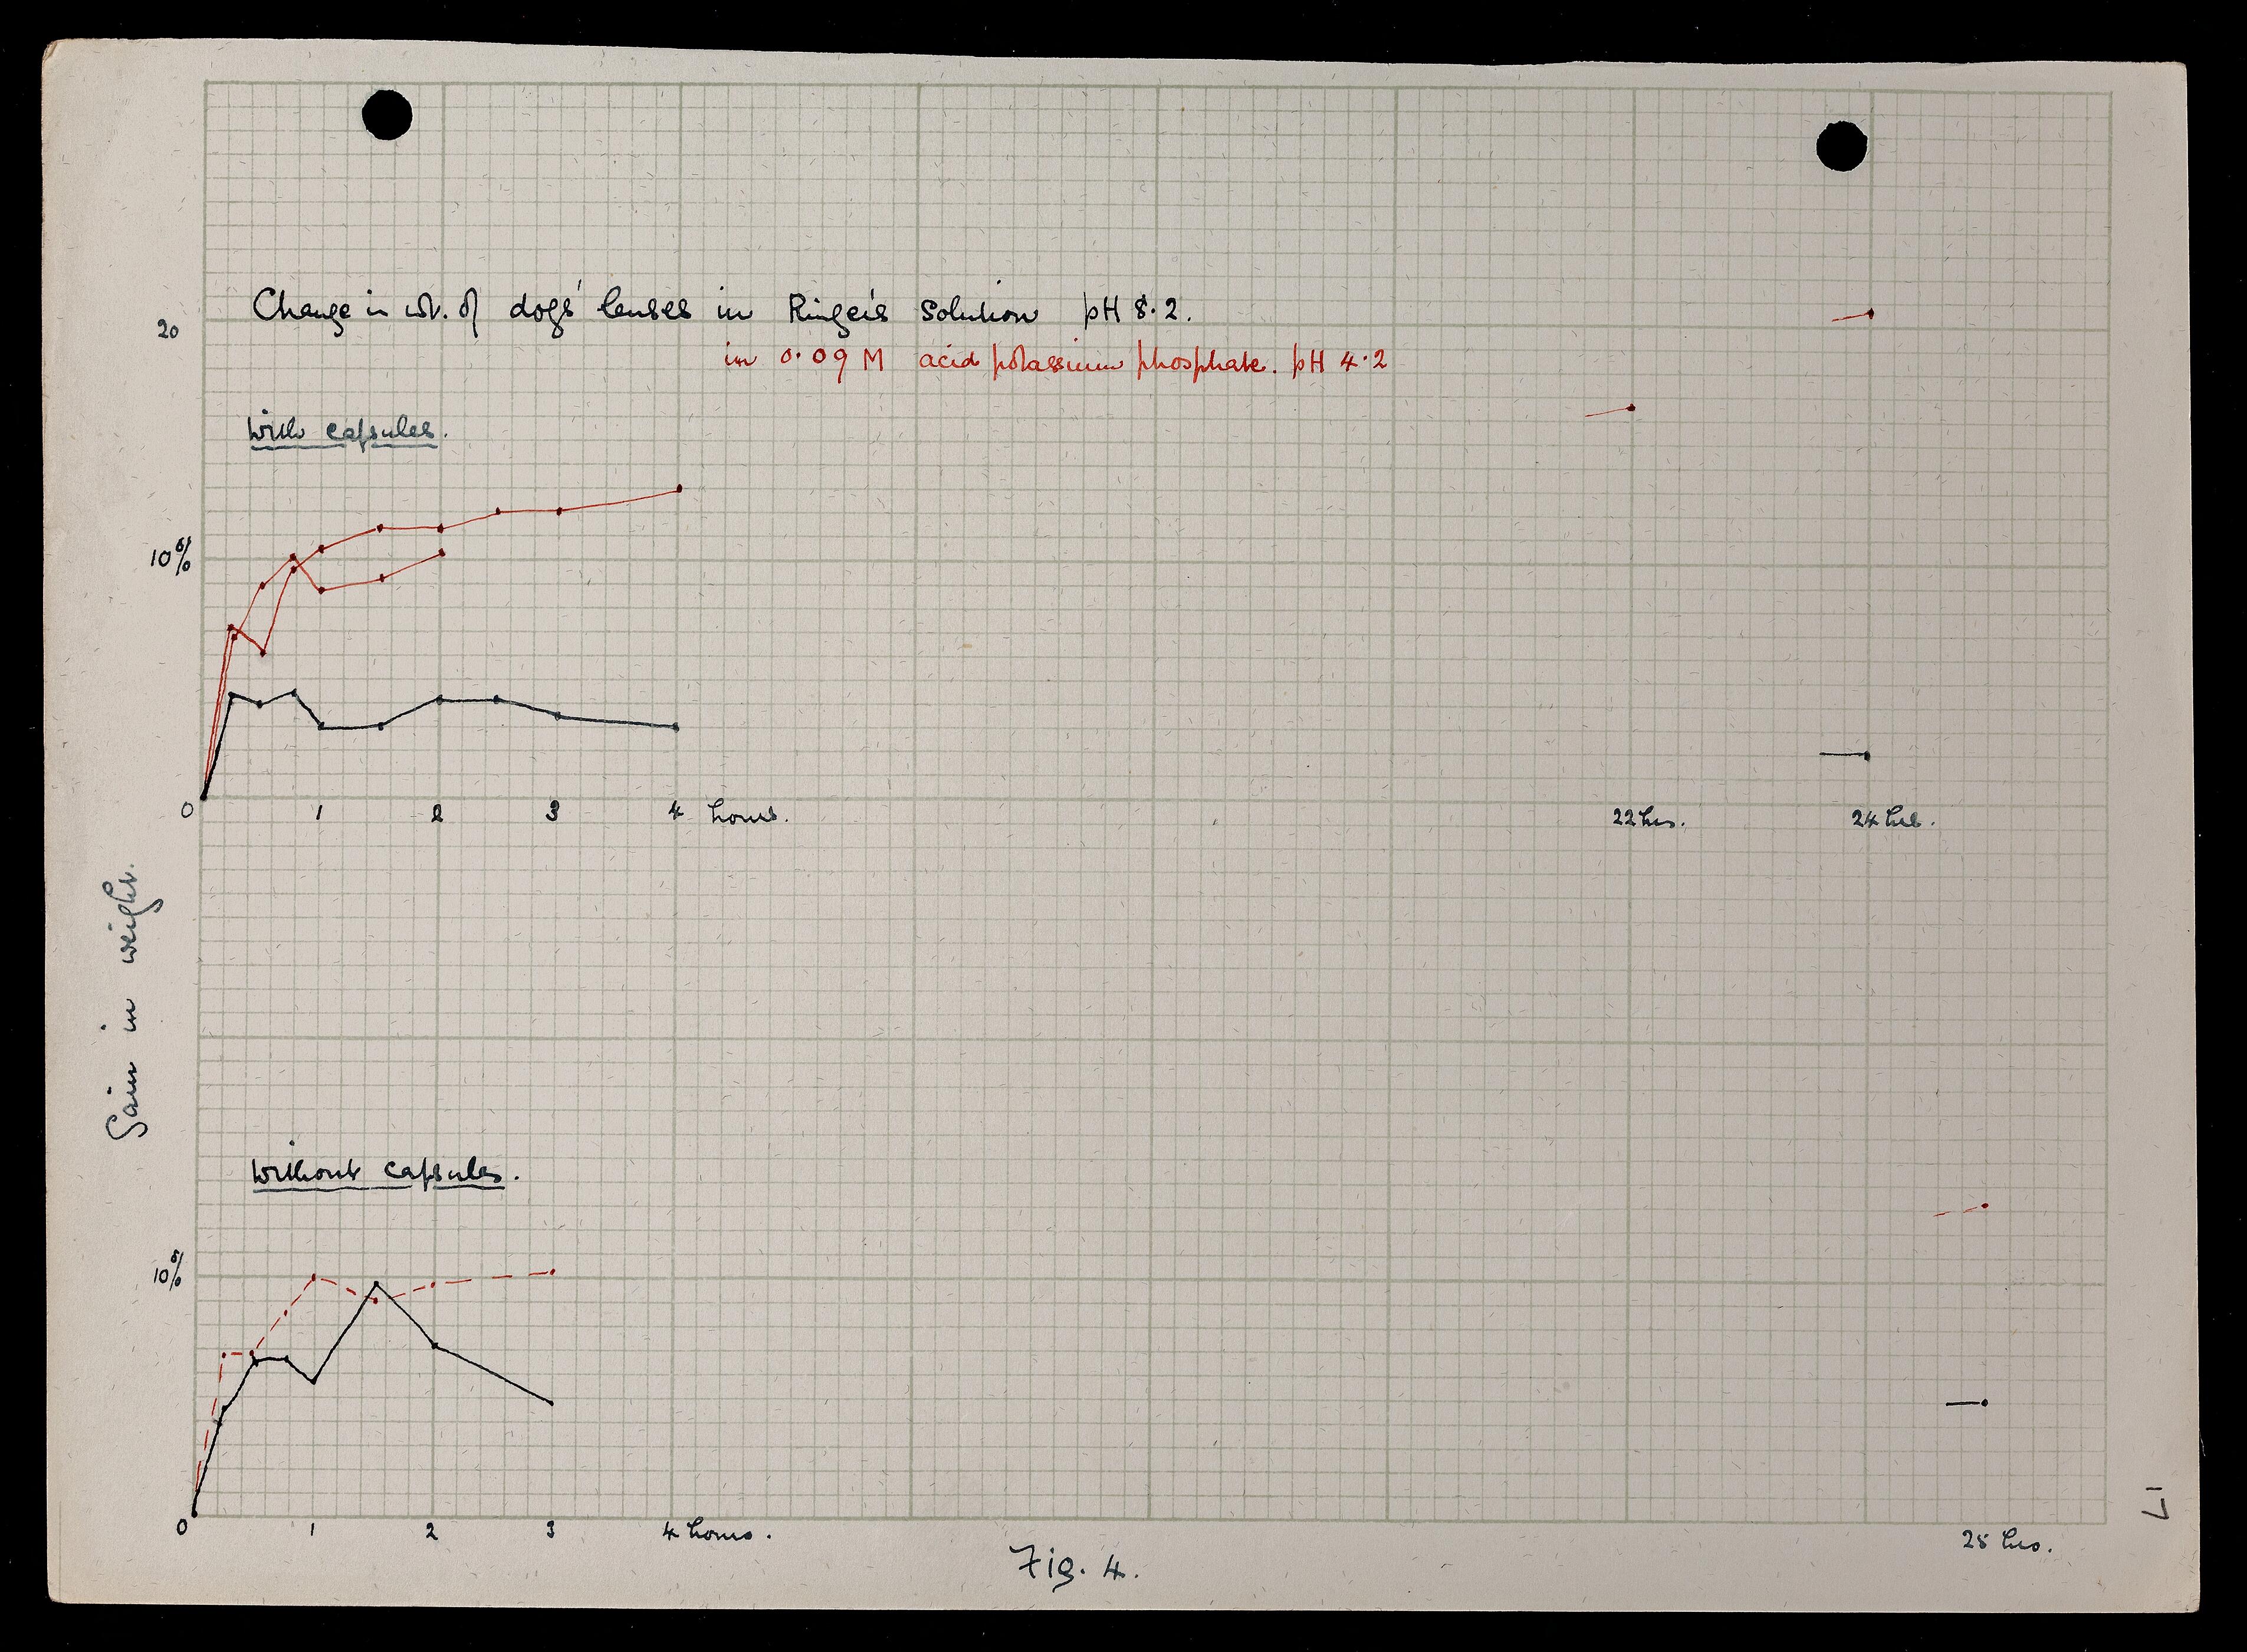 Change in wt. of dogs' lenses in Ringer's solution pH 8·2.
20
in 0·09 M acid potassium phosphate. pH 4·2
With capsules.
10%
0 1 2 3 4 hours. 22 hrs. 24 hrs.
Gain in weight.
Without capsules.
10%
0 1 2 3 4 hours. 25 hrs.
Fig. 4.
17